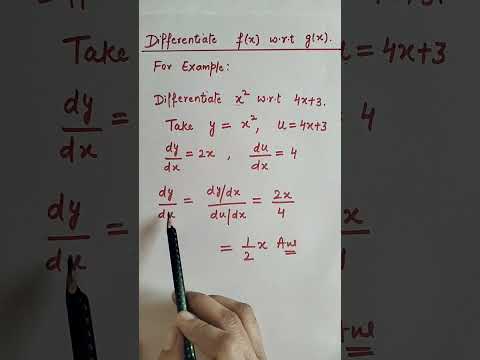 Differentiate f(x) w.r.t g(x).
For Example:
Differentiate x² w.r.t 4x+3.
Take y = x², u = 4x+3
dy/dx = 2x , du/dx = 4
dy/du = (dy/dx)/(du/dx) = 2x/4
= 1/2 x Ans